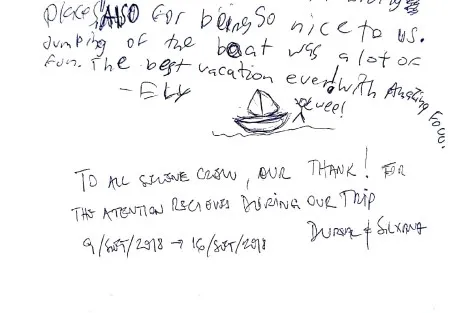 places, ALSO for being so nice to us.
Jumping of the boat was a lot of
fun. The best vacation ever! With Amazing Food.
- ELY
weee!
TO ALL CREW, OUR THANK! FOR
THE ATENTION RECIEVED DURING OUR TRIP
9/SET/2018 → 16/SET/2018 & SILVANA